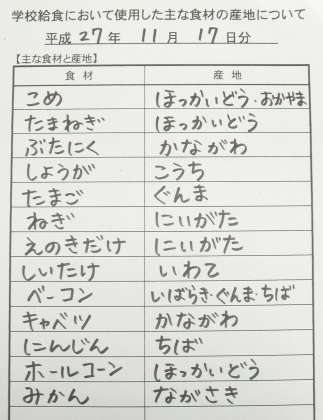 学校給食において使用した主な食材の産地について
平成 27 年 11 月 17 日分
【主な食材と産地】
食材 産地
こめ ほっかいどう・おかやま
たまねぎ ほっかいどう
ぶたにく かながわ
しょうが こうち
たまご ぐんま
ねぎ にいがた
えのきだけ にいがた
しいたけ いわて
ベーコン いばらき・ぐんま・ちば
キャベツ かながわ
にんじん ちば
ホールコーン ほっかいどう
みかん ながさき